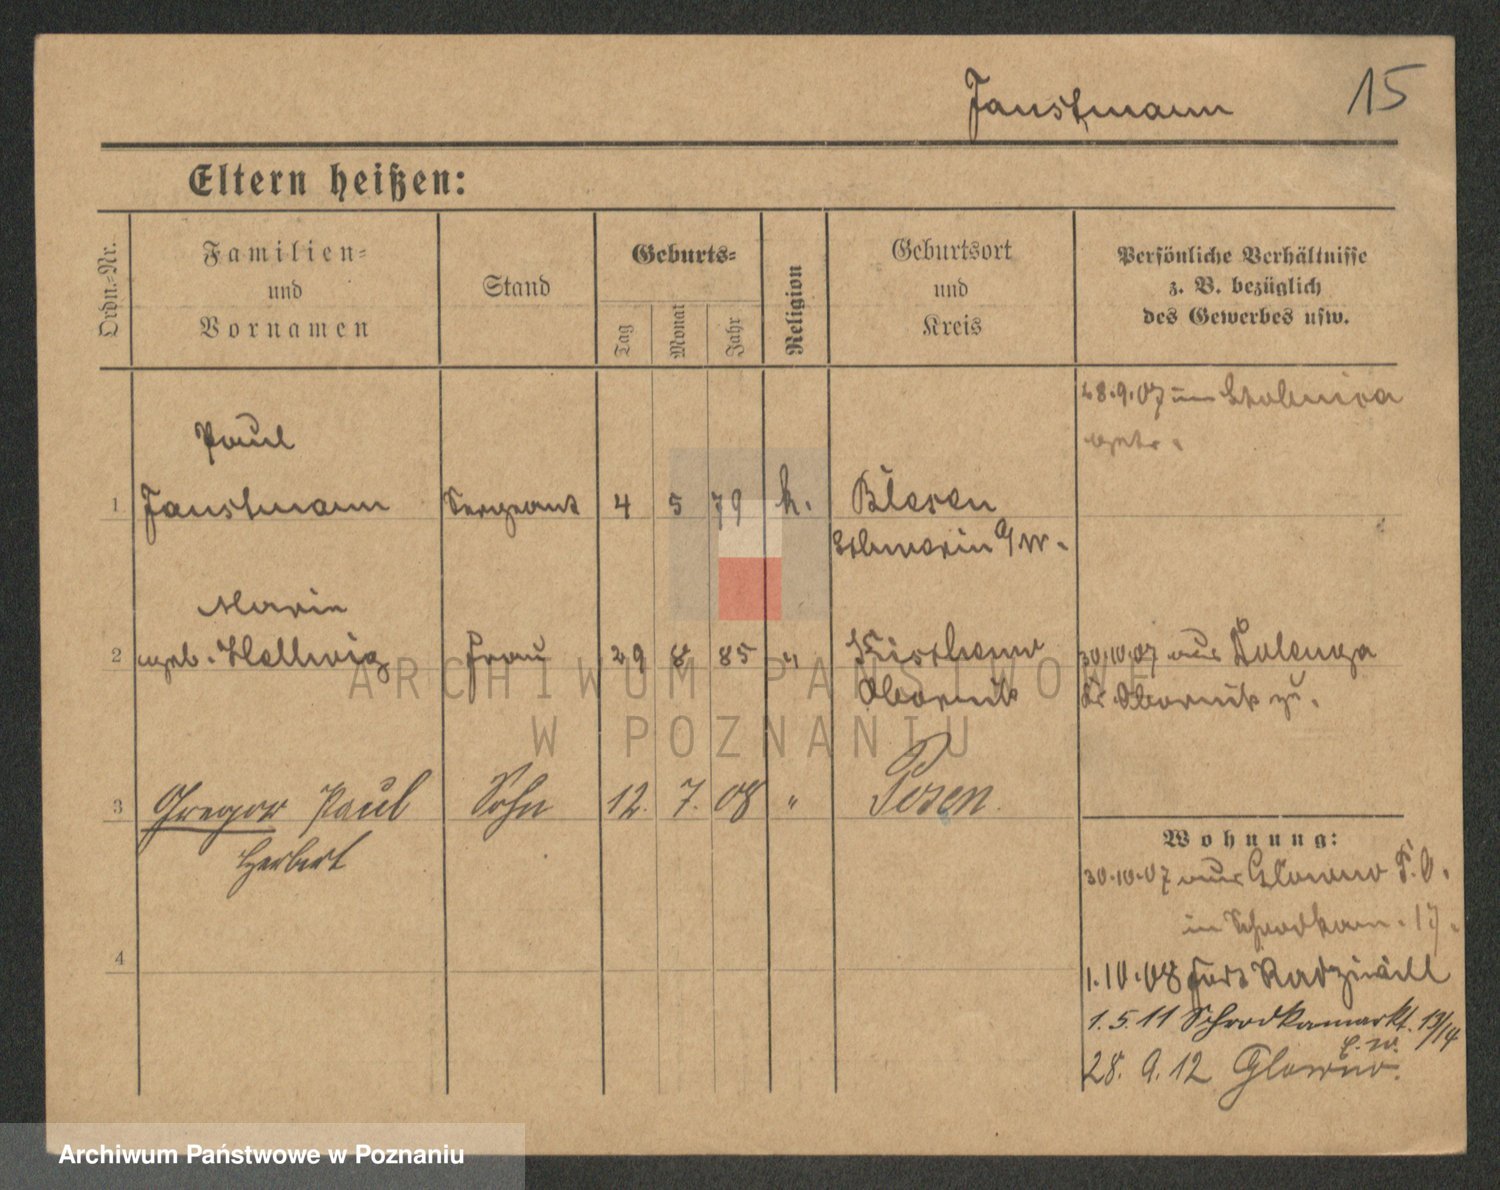 Faustmann 15
Eltern heißen:
Ordn.-Nr.
Familien-
und
Vornamen
Stand
Geburts-
Tag
Monat
Jahr
Religion
Geburtsort
und
Kreis
Persönliche Verhältnisse
z. B. bezüglich
des Gewerbes usw.
28.9.07 in
Paul
1 Faustmann Sergeant 4 5 79 k. Blesen
Schwerin a/W.
Marie
2 geb. Hellwig Frau 29 8 85 " 30/10.07 aus
Obornik Kr. Obornik zu.
3 Gregor Paul Sohn 12. 7. 08 " Posen
Herbert
4
Wohnung:
30.10.07 aus Glowno P. O.
in Schrodkam. 17.
1.10.08 Fort Radziwill
1.5.11 Schrodkamarkt. 13/14
28. 9. 12 Glowno.
ARCHIWUM PAŃSTWOWE
W POZNANIU
Archiwum Państwowe w Poznaniu